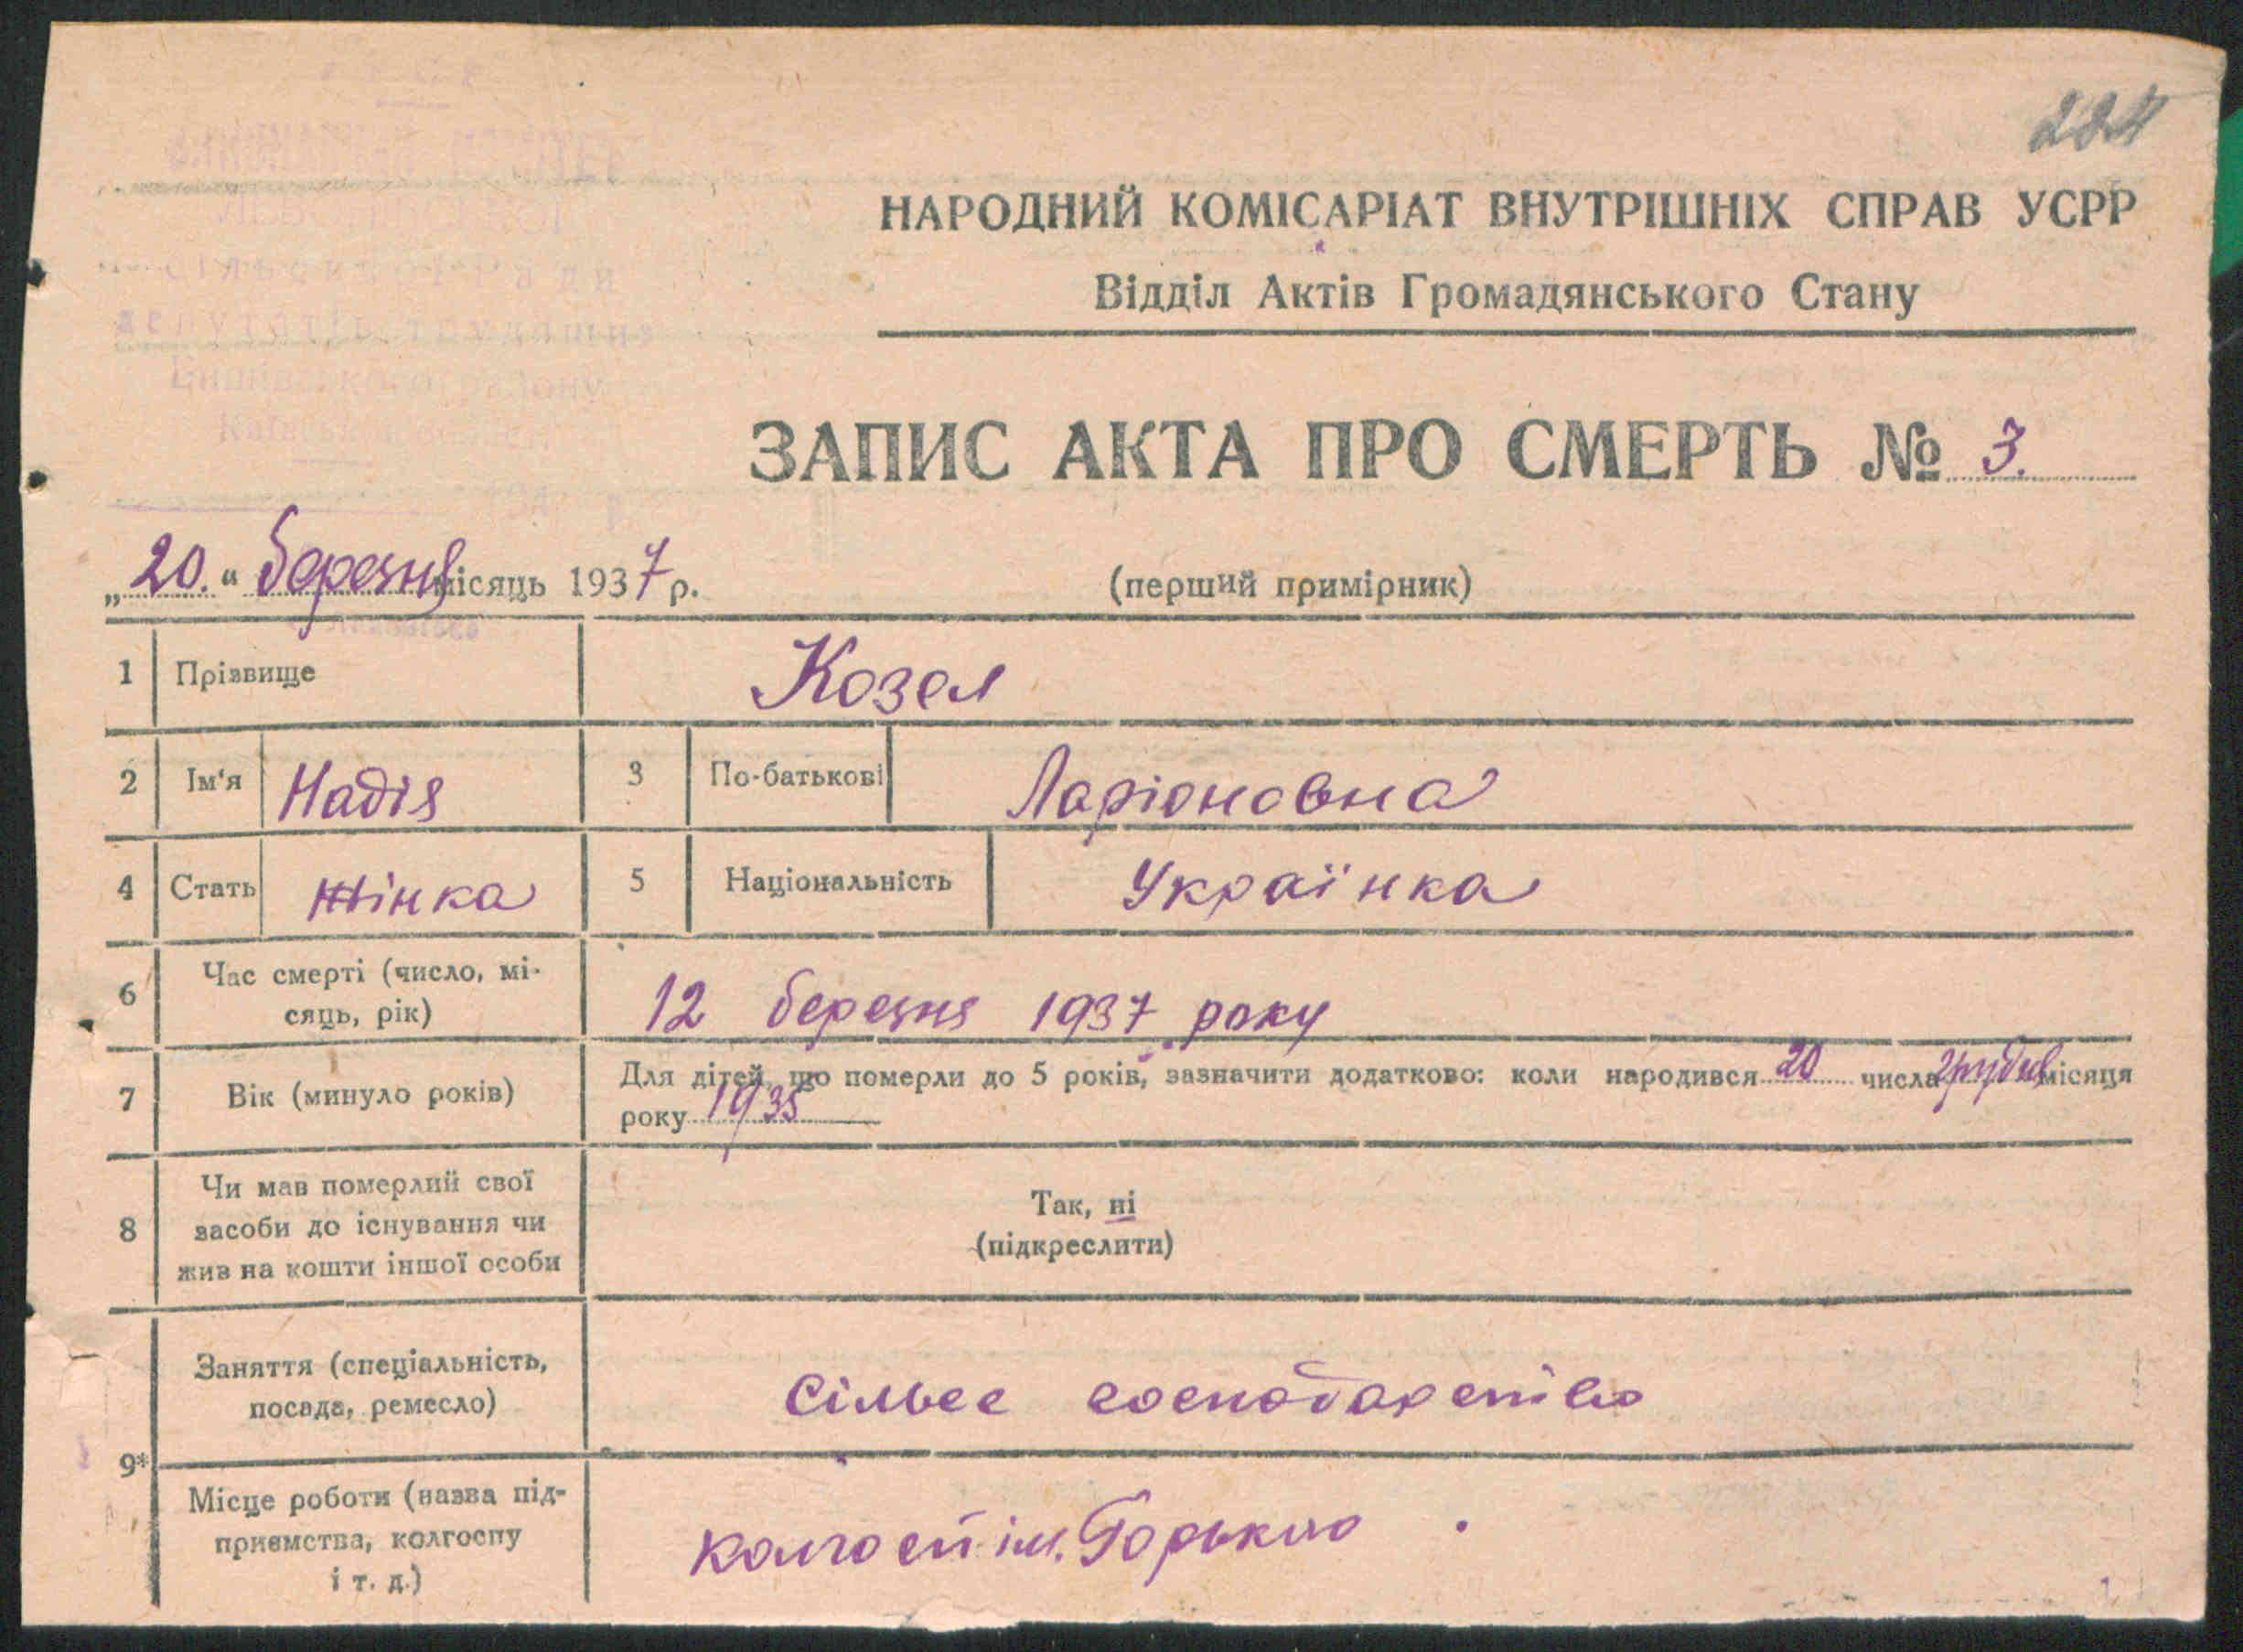 224
НАРОДНИЙ КОМІСАРІАТ ВНУТРІШНІХ СПРАВ УСРР
Відділ Актів Громадянського Стану
ЗАПИС АКТА ПРО СМЕРТЬ № 3.
„20." березня місяць 1937 р.
(перший примірник)
1 Прізвище Козел
2 Ім'я Надія 3 По-батькові Ларіоновна
4 Стать жінка 5 Національність Українка
6 Час смерті (число, мі-
сяць, рік) 12 березня 1937 року
7 Вік (минуло років) Для дітей, що померли до 5 років, зазначити додатково: коли народився 20 числа грудня місяця
року 1935
8 Чи мав померлий свої
засоби до існування чи
жив на кошти іншої особи
Так, ні
(підкреслити)
9* Заняття (спеціальність,
посада, ремесло) Сільсе господарство
Місце роботи (назва під-
приємства, колгоспу
і т. д.) колгосп ім. Горького